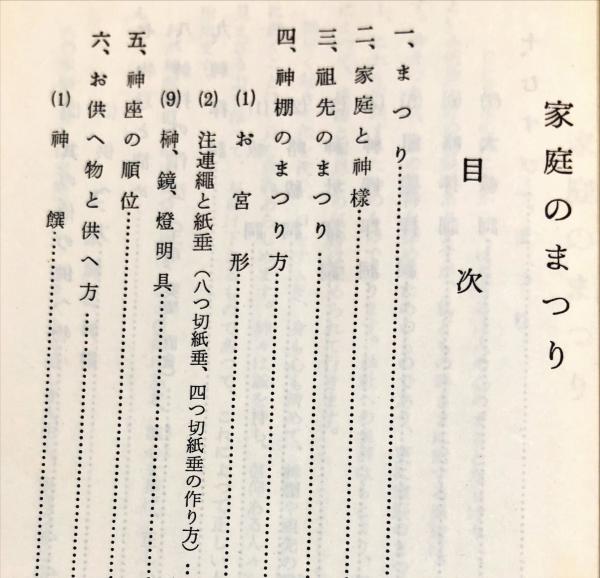 家庭のまつり
目次
一、まつり
二、家庭と神様
三、祖先のまつり
四、神棚のまつり方
(1) お宮形
(2) 注連繩と紙垂（八つ切紙垂、四つ切紙垂の作り方）
(9) 榊、鏡、燈明具
五、神座の順位
六、お供へ物と供へ方
(1) 神饌